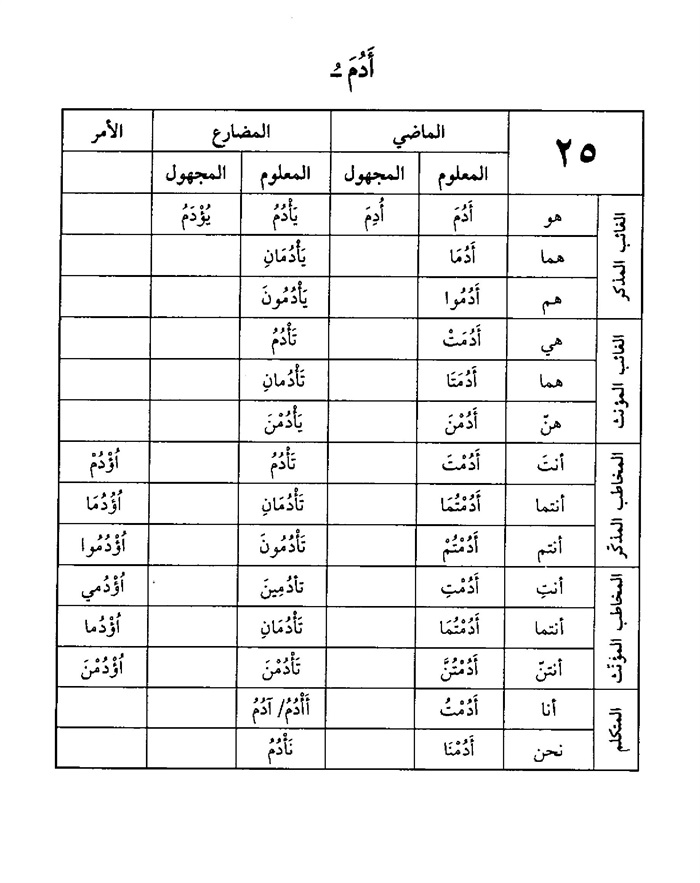 أَدُمَ ـُ
٢٥ الماضي المضارع الأمر
المعلوم المجهول المعلوم المجهول
الغائب المذكر
هو أَدُمَ أُدِمَ يَأْدُمُ يُؤْدَمُ
هما أَدُمَا يَأْدُمَانِ
هم أَدُمُوا يَأْدُمُونَ
الغائب المؤنث
هي أَدُمَتْ تَأْدُمُ
هما أَدُمَتَا تَأْدُمانِ
هنّ أَدُمْنَ يَأْدُمْنَ
المخاطب المذكّر
أنتَ أَدُمْتَ تَأْدُمُ اُؤْدُمْ
أنتما أَدُمْتُمَا تَأْدُمَانِ اُؤْدُمَا
أنتم أَدُمْتُمْ تَأْدُمُونَ اُؤْدُمُوا
المخاطب المؤنّث
أنتِ أَدُمْتِ تأدُمِينَ اُؤْدُمي
أنتما أَدُمْتُمَا تَأْدُمَانِ اُؤْدُما
أنتنّ أَدُمْتُنَّ تَأْدُمْنَ اُؤْدُمْنَ
المتكلم
أنا أَدُمْتُ أَأْدُمُ/ آدُمُ
نحن أَدُمْنَا نَأْدُمُ